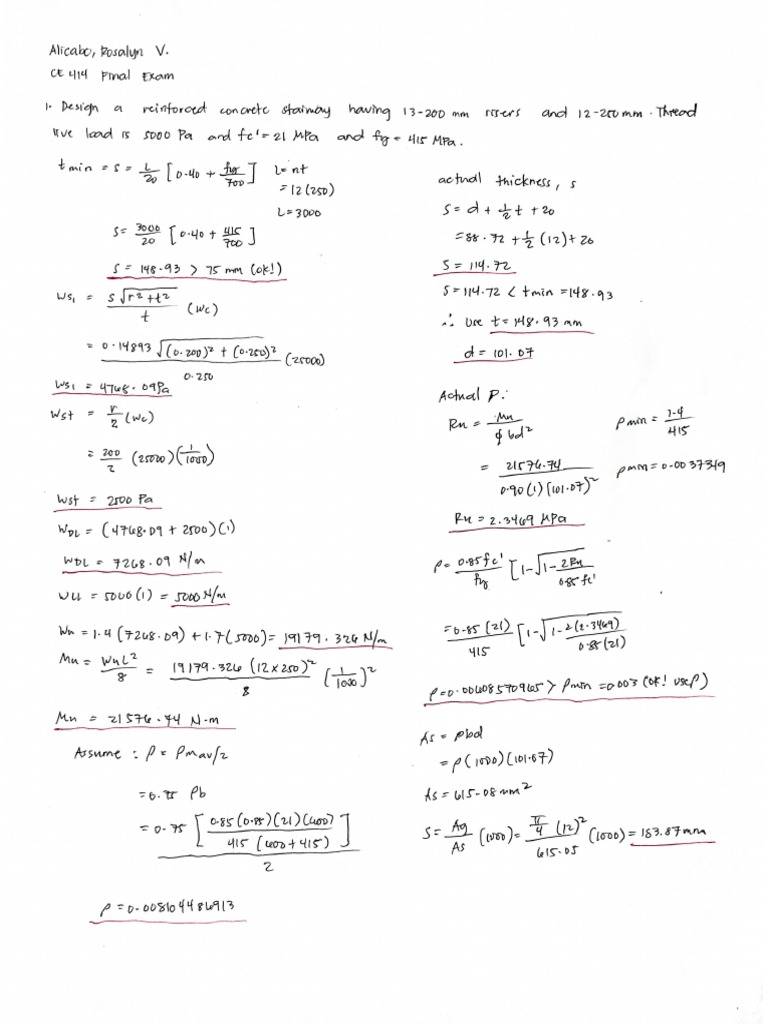 Alicabo, Rosalyn V.
CE 414 Final Exam
1. Design a reinforced concrete stairway having 13-200 mm risers and 12-250 mm. Thread
live load is 5000 Pa and fc' = 21 MPa and fy = 415 MPa.
t min = s = L/20 [0.40 + fy/700] L = nt
= 12 (250)
L = 3000
S = 3000/20 [0.40 + 415/700]
S = 148.93 > 75 mm (ok!)
Ws₁ = s √(r² + t²) / t (Wc)
= 0.14893 √((0.200)² + (0.250)²) / 0.250 (25000)
Ws₁ = 4768.09 Pa
Wst = r/2 (Wc)
= 200/2 (25000) (1/1000)
Wst = 2500 Pa
WDL = (4768.09 + 2500)(1)
WDL = 7268.09 N/m
WLL = 5000 (1) = 5000 N/m
Wu = 1.4 (7268.09) + 1.7 (5000) = 19179.326 N/m
Mu = WuL²/8 = 19179.326 (12 x 250)²/8 (1/1000)²
Mu = 21576.74 N·m
Assume : ρ = ρmax/2
= 0.75 ρb
= 0.75 [0.85 (0.85) (21) (600) / 415 (600 + 415)] / 2
ρ = 0.008104486913
actual thickness, s
S = d + 1/2 t + 20
= 88.72 + 1/2 (12) + 20
S = 114.72
S = 114.72 < t min = 148.93
∴ Use t = 148.93 mm
d = 101.07
Actual ρ:
Ru = Mu / φ bd² ρ min = 1.4/415
= 21576.74 / 0.90 (1) (101.07)² ρmin = 0.0037349
Ru = 2.3469 MPa
ρ = 0.85 fc'/fy [1 - √(1 - 2Ru/0.85 fc'
= 0.85 (21)/415 [1 - √(1 - 2(2.3469)/0.85 (21)
ρ = 0.00608570965 > ρmin = 0.003 (OK! use ρ)
As = ρbd
= ρ (1000) (101.07)
As = 615.08 mm²
S = Ag/As (1000) = π/4 (12)² / 615.05 (1000) = 183.87 mm